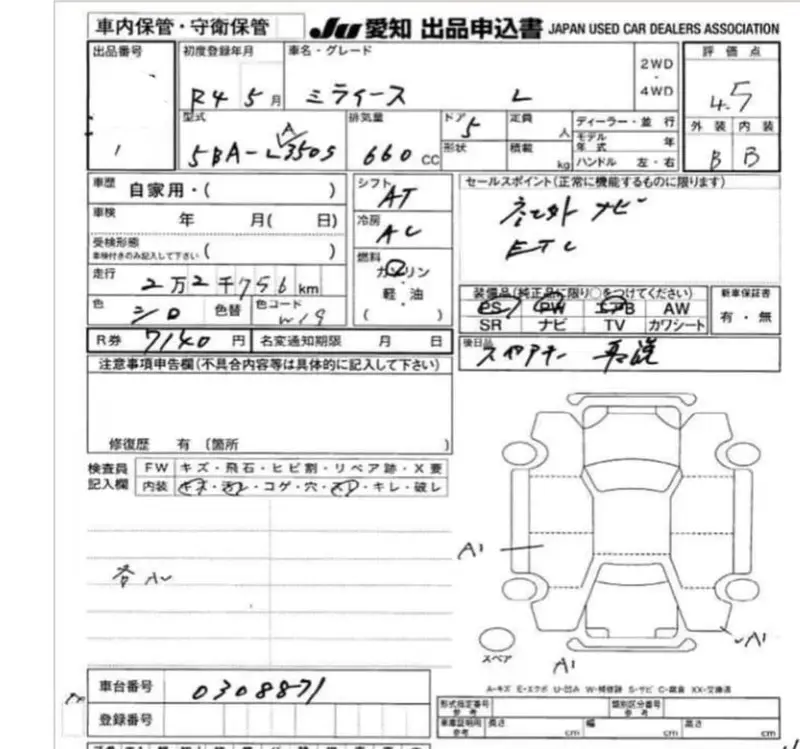 車内保管・守衛保管
JU 愛知 出品申込書 JAPAN USED CAR DEALERS ASSOCIATION
出品番号
1
初度登録年月
R4 5月
車名・グレード
ミライース L
2WD
・
4WD
評価点
4.5
外装 内装
B B
型式
5BA-L
350S
A
排気量
660 CC
ドア
5
形状
定員
人
積載
kg
ディーラー・並行
モデル
年式
年
ハンドル 左・右
車歴
自家用・( )
車検
年 月( 日)
受検形態
車検付きのみ記入して下さい
( )
走行
2万2千756km
色
シロ
色替
色コード
W19
シフト
AT
冷房
AC
燃料
ガソリン
・
軽・油
( )
セールスポイント(正常に機能するものに限ります)
ナビ
ETC
装備品(純正品に限り○をつけてください)
PS PW エアB AW
SR ナビ TV カワシート
新車保証書
有・無
R券
7140 円
名変通知期限 月 日
後日品
スペアキー
注意事項申告欄(不具合内容等は具体的に記入して下さい)
修復歴 有 〔箇所 〕
検査員
記入欄
FW キズ・飛石・ヒビ割・リペア跡・X要
内装 キズ・汚レ・コゲ・穴・スレ・キレ・破レ
A1
A1
A1
スペア
A-キズ E-エクボ U-凹ミ W-補修跡 S-サビ C-腐食 XX-交換済
車台番号
0308871
登録番号
形式指定番号
参考
類別区分番号
参考
車庫証明用
参考
長さ cm 幅 cm 高さ cm